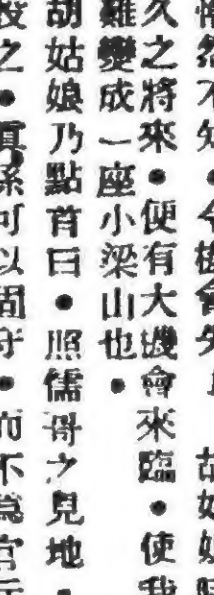 惟然不知●
胡姑娘
久之將來●便有大機會來臨●使我
難變成一座小梁山也●
胡姑娘乃點首曰●照儒哥之見地●
投之●真系可以固守●而不爲官